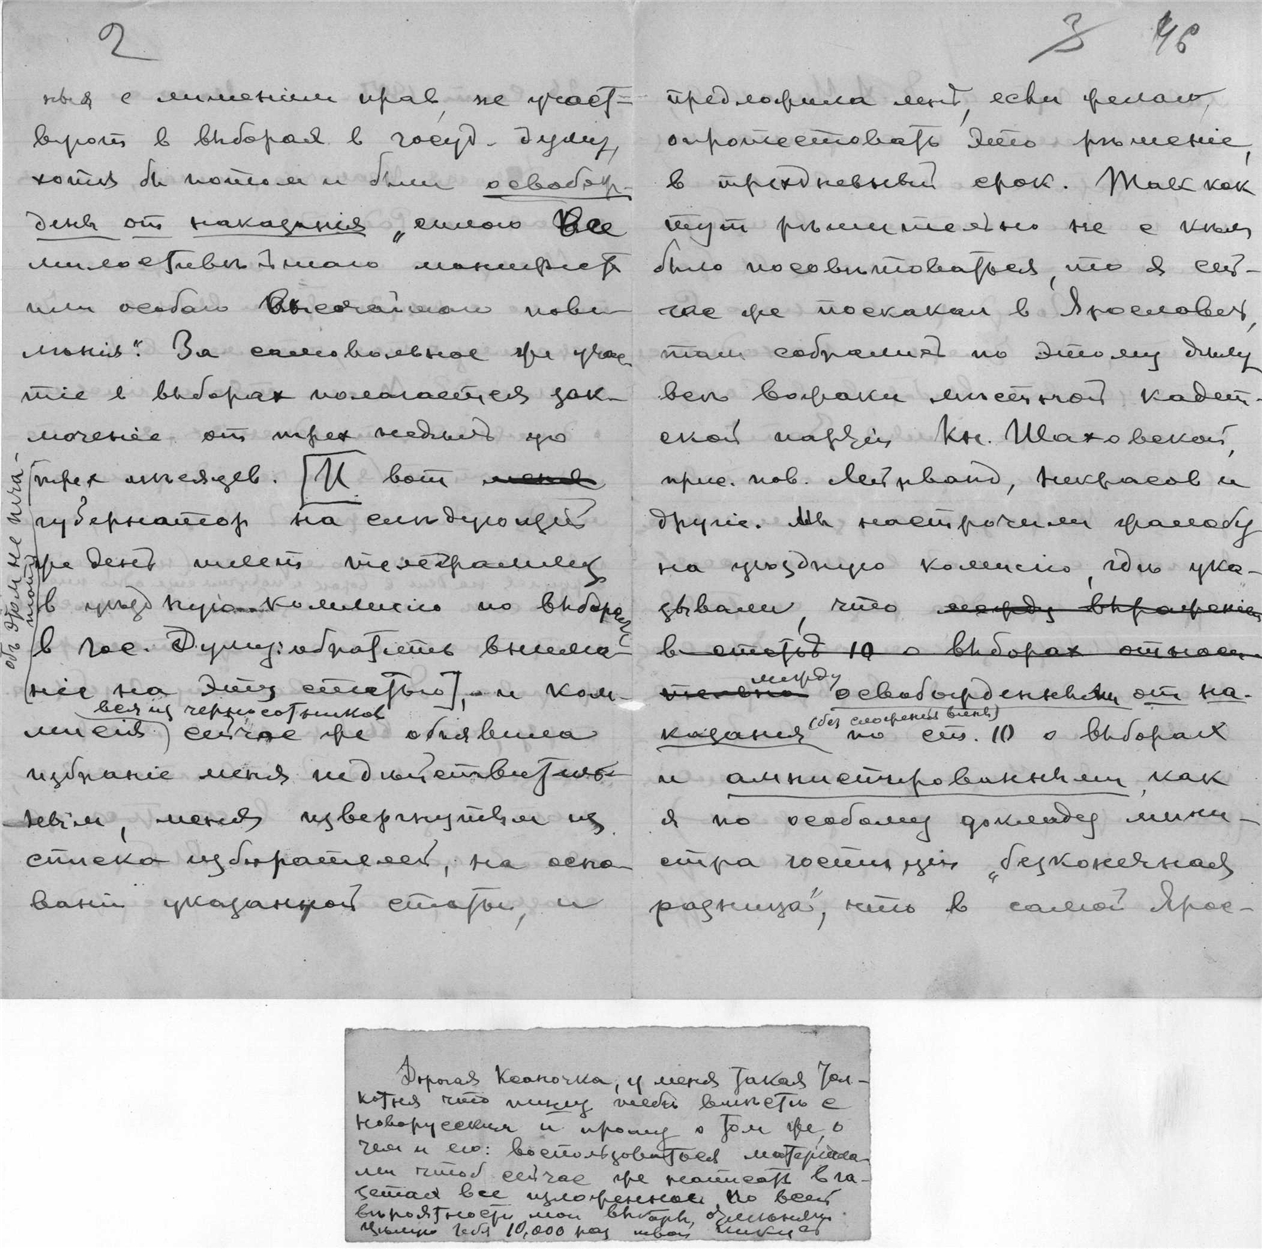 2
ныя с лишеніем прав, не участ-
вуют в выборая в госуд. думу,
хотя бы потом и были освобож-
дены от накаданія „силою Все
милостивѣйшаго манифеста
или особаго Высочайшаго пове-
лѣнія". За самовольное же учас
тіе в выборах полагается зак-
лоченіе от трех недѣль до
трех мѣсяцев. [И вот меня
губернатор на слѣдующій
же день шлет телеграмму
в уѣздную коммисію по выборам
в Гос. Думу: обратить внима-
ніе на эту статью], и ком-
вся из черносотников
мисія) сейчас же объявила
избраніе меня недѣйствитель-
ным, меня извергнутым из
списка избирателей, на осно-
ваніи указанной статьи, и
объ этом не печа-
тай
3 46
предложила мнѣ, если желаю,
опротестовать это рѣшеніе,
в трехдневный срок. Так как
тут рѣшительно не с кѣм
было посовѣтоваться, то я сей-
час же поскакал в Ярославль,
там собрались по этому дѣлу
всѣ вожаки мѣстной кадет-
ской партіи Кн. Шаховской,
прис. пов. Некрасов и
другіе. Мы настрочили жалобу
на уѣздную комисію, гдѣ ука-
зывали, что между выраженіем
в статьѣ 10 о выборах относи-
тельно между освобожденным от на-
(без сложенія вины)
казанія по ст. 10 о выборах
и амнистированным, как
я по особому докладу мини-
стра юстиціи „безконечная
разница", что в самой Яросл-
Дорогая Ксаночка, у меня такая тол-
котня что пишу тебѣ вмѣстѣ с
Новорусским и прошу о том же, о
чем и его: воспользоваться матеріала-
ми чтоб сейчас же написать в га-
зетах все изложенное. По всей
вѣроятности мои выборы отмѣнят.
Цѣлую тебя 10,000 раз твой